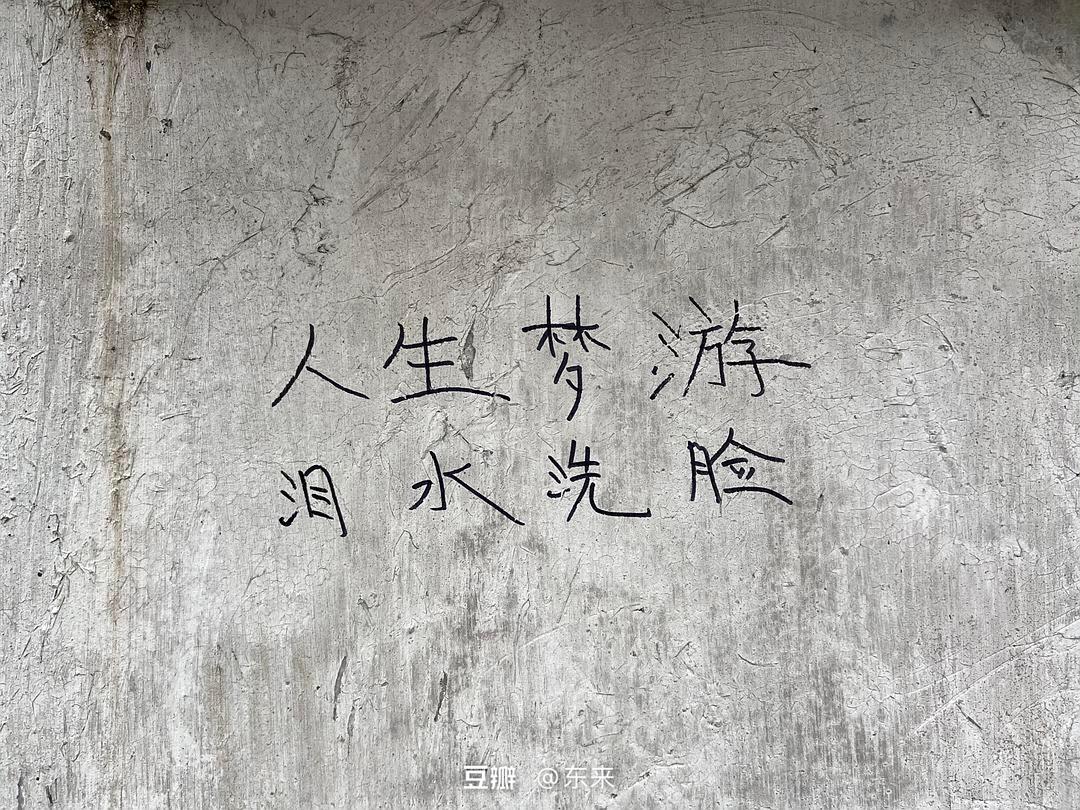 人生梦游
泪水洗脸
豆瓣 @东来